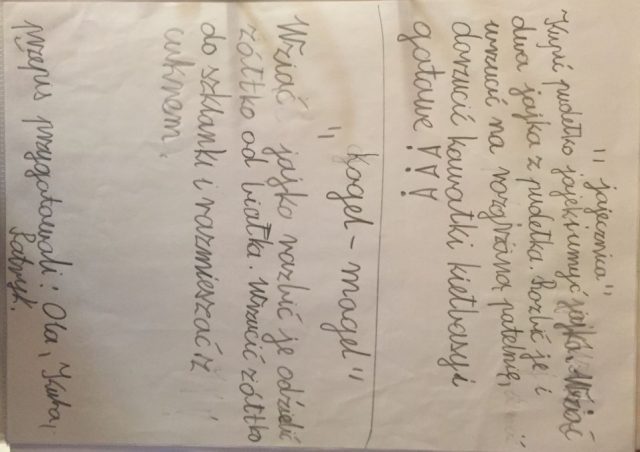 „jajecznica"
Kupić pudełko jajek i umyć jajka. Wziąć
dwa jajka z pudełka. Rozbić je i
wrzucić na rozgrzaną patelnię,
dorzucić kawałki kiełbasy i
gotowe!!!
„Kogel-mogel"
Wziąć jajko rozbić je odzielić
żółtko od białka. Wrzucić żółtko
do szklanki i rozmieszać z
cukrem.
przepis przygotowali: Ola, Kuba,
Patryk.